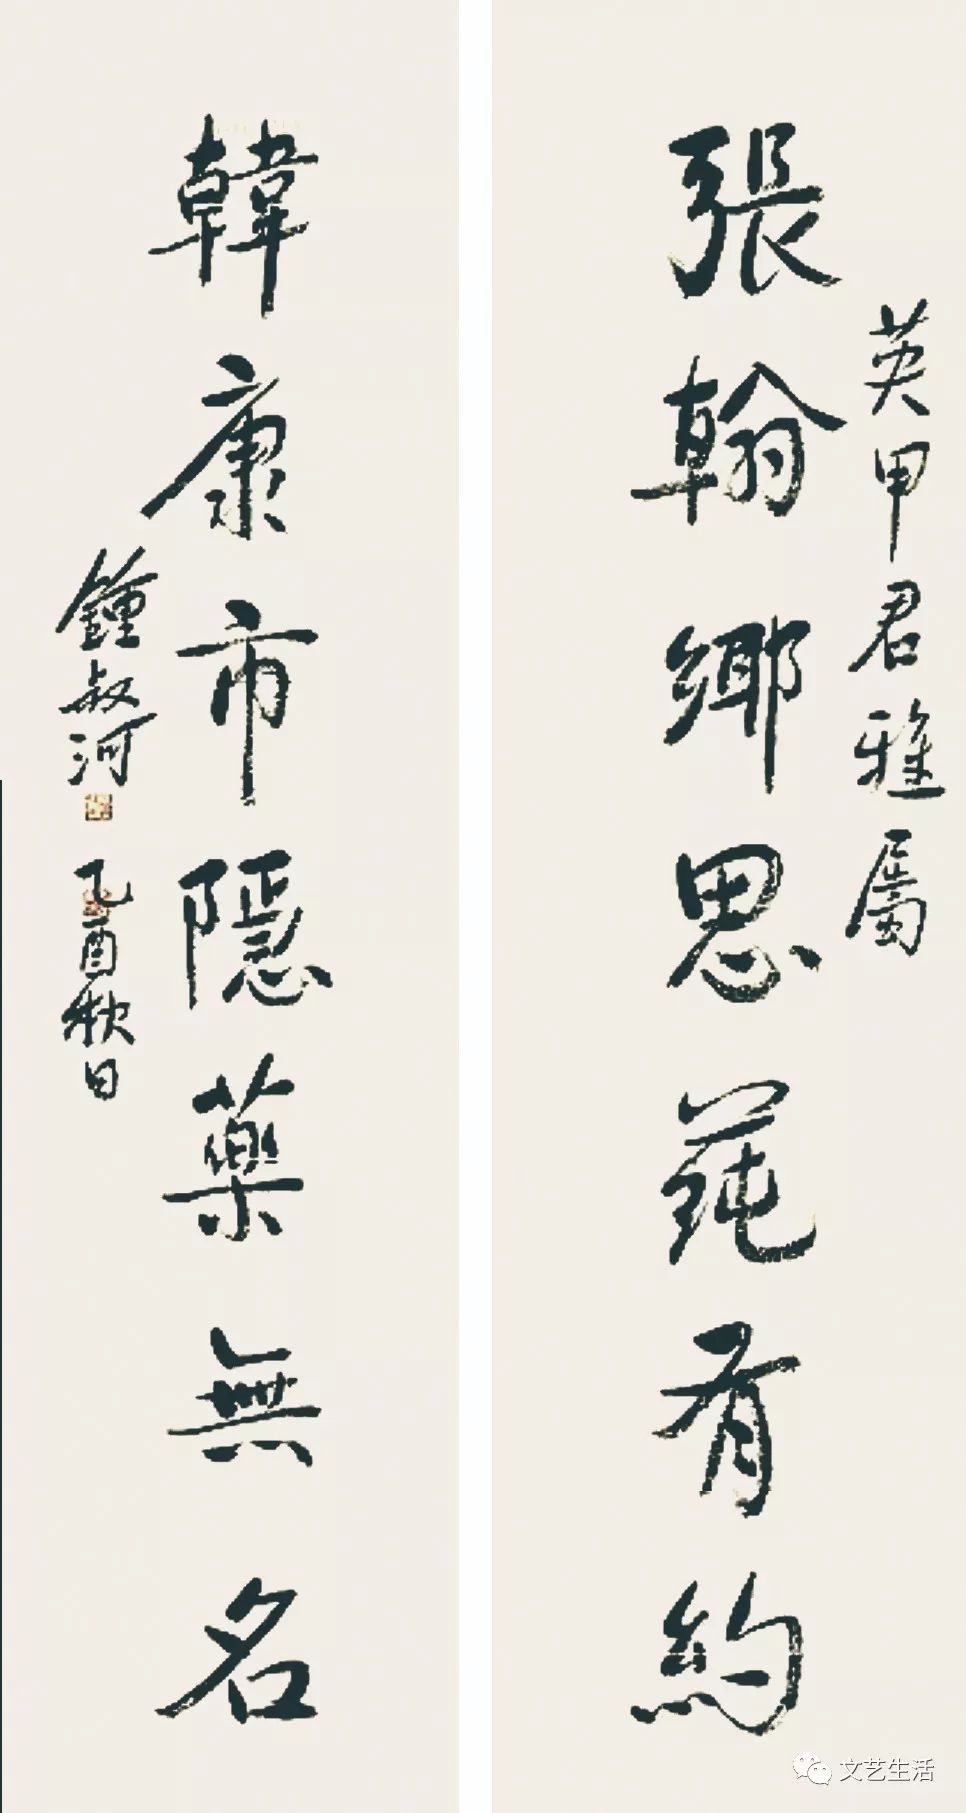 英甲君雅屬
張翰鄉思蒓有約
韓康市隱藥無名
鍾叔河
乙酉秋日
文艺生活